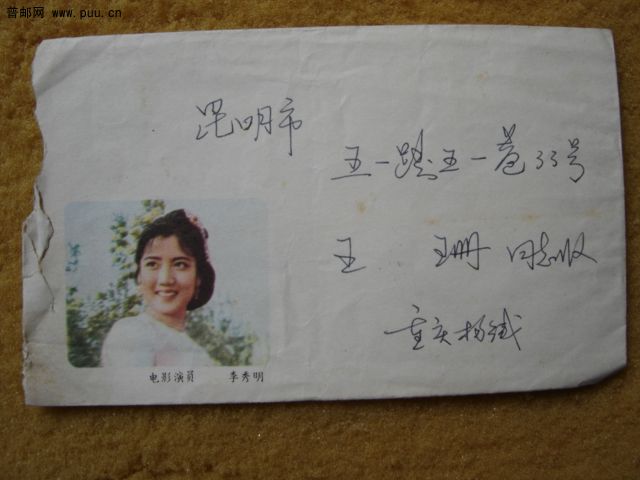 普邮网 www.puu.cn
昆明市
五一路五一巷33号
王 珊 同志收
重庆杨缄
电影演员 李秀明